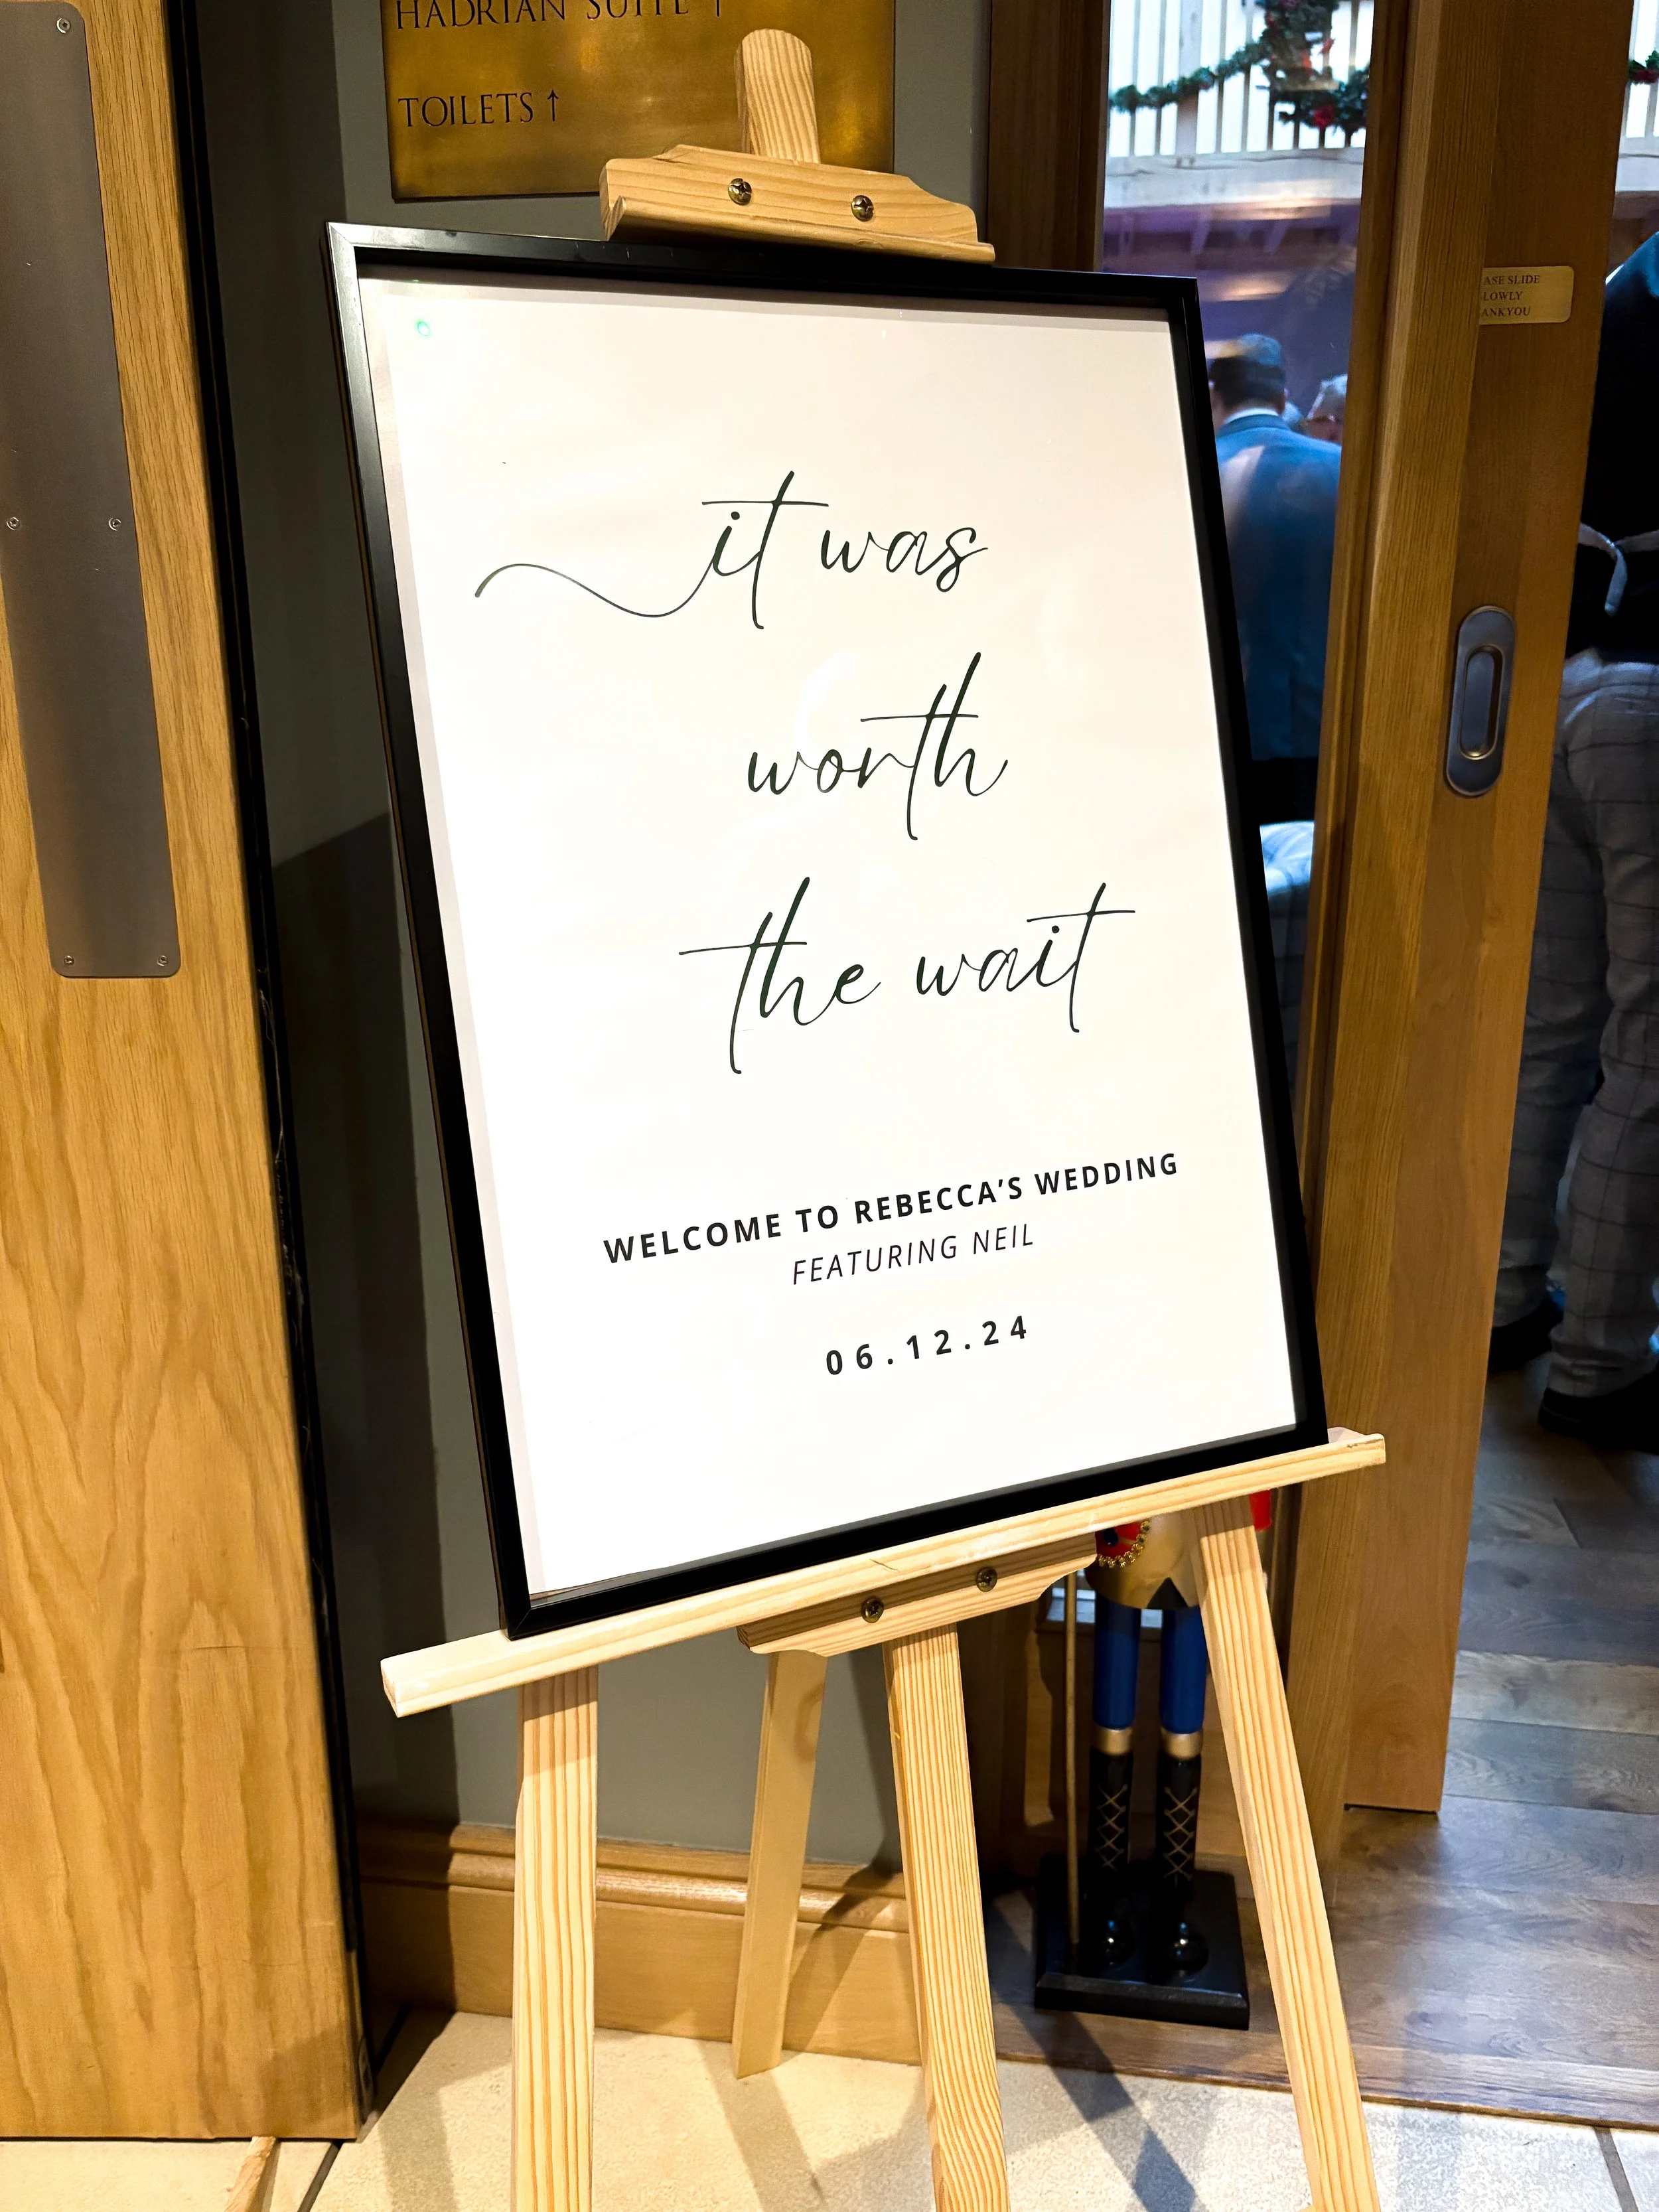 HADRIAN SUITE ↑
TOILETS ↑
ASE SLIDE
LOWLY
ANKYOU
it was
worth
the wait
WELCOME TO REBECCA'S WEDDING
FEATURING NEIL
06.12.24